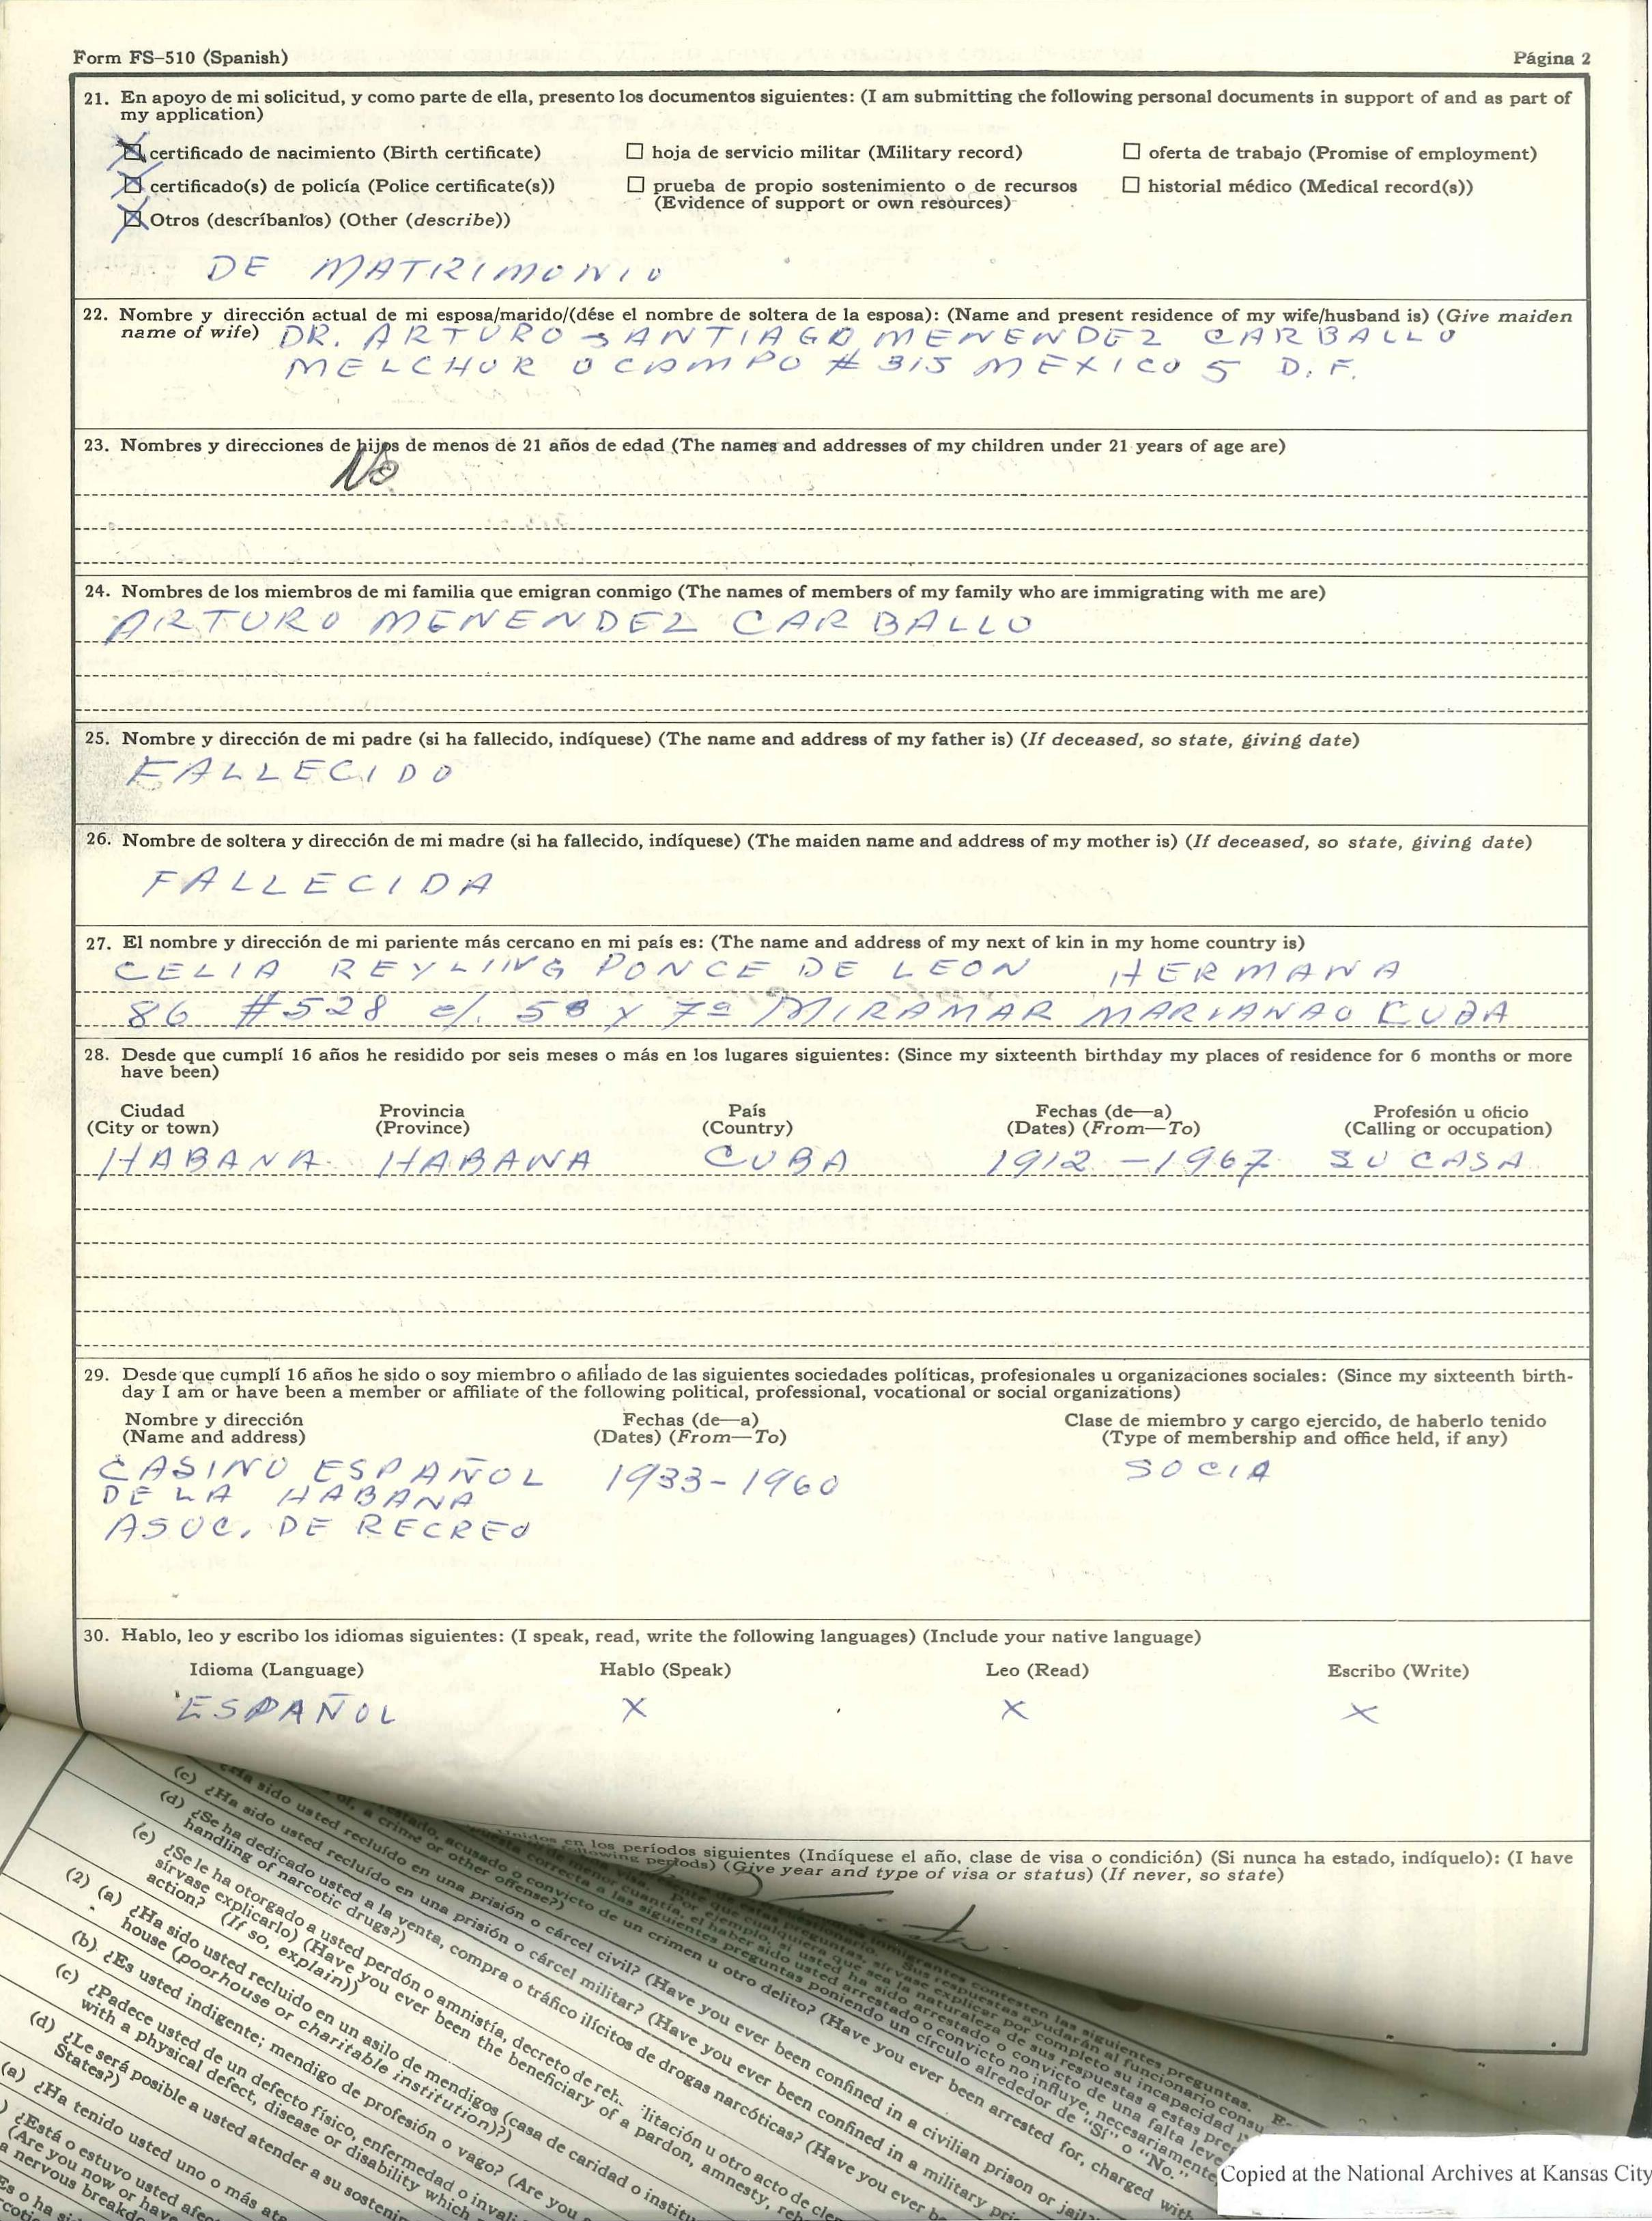 Form FS-510 (Spanish)
Página 2
21. En apoyo de mi solicitud, y como parte de ella, presento los documentos siguientes: (I am submitting the following personal documents in support of and as part of
my application)
certificado de nacimiento (Birth certificate)
hoja de servicio militar (Military record)
oferta de trabajo (Promise of employment)
certificado(s) de policía (Police certificate(s))
prueba de propio sostenimiento o de recursos
(Evidence of support or own resources)
historial médico (Medical record(s))
Otros (descríbanlos) (Other (describe))
DE MATRIMONIO
22. Nombre y dirección actual de mi esposa/marido/(dése el nombre de soltera de la esposa): (Name and present residence of my wife/husband is) (Give maiden
name of wife) DR. ARTURO SANTIAGO MENENDEZ CARBALLO
MELCHOR OCAMPO # 315 MEXICO 5 D.F.
23. Nombres y direcciones de hijos de menos de 21 años de edad (The names and addresses of my children under 21 years of age are)
No
24. Nombres de los miembros de mi familia que emigran conmigo (The names of members of my family who are immigrating with me are)
ARTURO MENENDEZ CARBALLO
25. Nombre y dirección de mi padre (si ha fallecido, indíquese) (The name and address of my father is) (If deceased, so state, giving date)
FALLECIDO
26. Nombre de soltera y dirección de mi madre (si ha fallecido, indíquese) (The maiden name and address of my mother is) (If deceased, so state, giving date)
FALLECIDA
27. El nombre y dirección de mi pariente más cercano en mi país es: (The name and address of my next of kin in my home country is)
CELIA REYLING PONCE DE LEON HERMANA
86 #528 e/. 5ª y 7ª MIRAMAR MARIANAO CUBA
28. Desde que cumplí 16 años he residido por seis meses o más en los lugares siguientes: (Since my sixteenth birthday my places of residence for 6 months or more
have been)
Ciudad Provincia País Fechas (de—a) Profesión u oficio
(City or town) (Province) (Country) (Dates) (From—To) (Calling or occupation)
HABANA HABANA CUBA 1912 - 1967 SU CASA
29. Desde que cumplí 16 años he sido o soy miembro o afiliado de las siguientes sociedades políticas, profesionales u organizaciones sociales: (Since my sixteenth birth-
day I am or have been a member or affiliate of the following political, professional, vocational or social organizations)
Nombre y dirección Fechas (de—a) Clase de miembro y cargo ejercido, de haberlo tenido
(Name and address) (Dates) (From—To) (Type of membership and office held, if any)
CASINO ESPAÑOL 1933-1960 SOCIA
DE LA HABANA
ASOC. DE RECREO
30. Hablo, leo y escribo los idiomas siguientes: (I speak, read, write the following languages) (Include your native language)
Idioma (Language) Hablo (Speak) Leo (Read) Escribo (Write)
ESPAÑOL X X X
en los períodos siguientes (Indíquese el año, clase de visa o condición) (Si nunca ha estado, indíquelo): (I have
periods) (Give year and type of visa or status) (If never, so state)
(c) ¿Ha sido usted recluído en una prisión o cárcel civil? (Have you ever been confined in a civilian prison or jail
(d) ¿Se ha dedicado usted a la venta, compra o tráfico ilícitos de drogas narcóticas? (Have you ever
handling of narcotic drugs?)
(e) ¿Se le ha otorgado a usted perdón o amnistía, decreto de
sírvase explicarlo) (Have you ever been the beneficiary of a pardon, amnesty,
action? (If so, explain))
(2) (a) ¿Ha sido usted recluido en un asilo de mendigos (casa de caridad o
house (poorhouse or charitable institution)?)
(b) ¿Es usted indigente; mendigo de profesión o vago? (Are you
(c) ¿Padece usted de un defecto físico, enfermedad o
with a physical defect, disease or disability which
(d) ¿Le será posible a usted atender a su
States?)
(a) ¿Ha tenido usted uno o más
¿Está o estuvo usted
(Are you now or have
a nervous
Copied at the National Archives at Kansas City